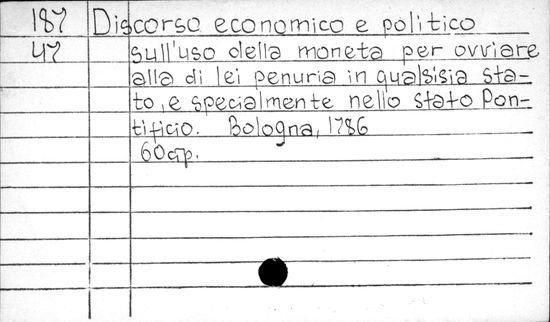 187 Discorso economico e politico
47 sull'uso della moneta per ovviare
alla di lei penuria in qualsisia sta-
to, e specialmente nello stato Pon-
tificio. Bologna, 1786
60 cp.